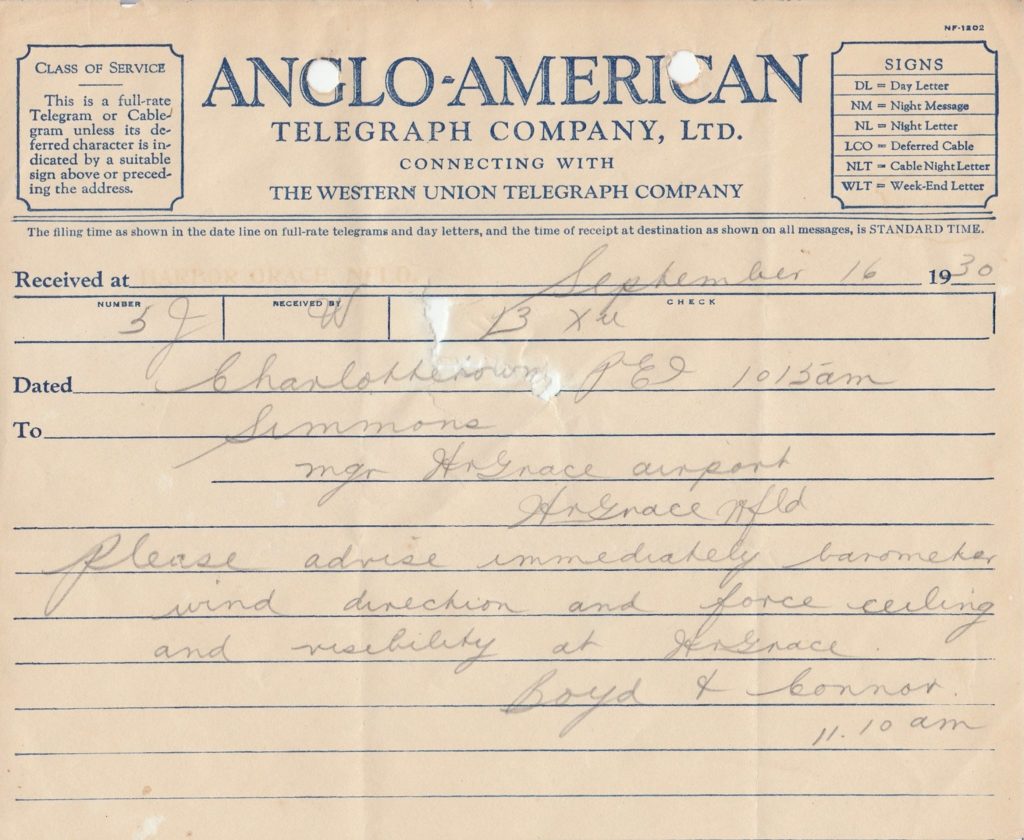 NF-1202
CLASS OF SERVICE
This is a full-rate
Telegram or Cable-
gram unless its de-
ferred character is in-
dicated by a suitable
sign above or preced-
ing the address.
ANGLO-AMERICAN
TELEGRAPH COMPANY, LTD.
CONNECTING WITH
THE WESTERN UNION TELEGRAPH COMPANY
SIGNS
DL = Day Letter
NM = Night Message
NL = Night Letter
LCO = Deferred Cable
NLT = Cable Night Letter
WLT = Week-End Letter
The filing time as shown in the date line on full-rate telegrams and day letters, and the time of receipt at destination as shown on all messages, is STANDARD TIME.
Received at HARBOR GRACE NFLD. September 16 1930
NUMBER RECEIVED BY CHECK
5 J W 23
Dated Charlottetown PEI 1015am
To Simmons
mgr HrGrace airport
HrGrace Nfld
Please advise immediately barometer
wind direction and force ceiling
and visibility at HrGrace.
Boyd & Connor.
11.10 am